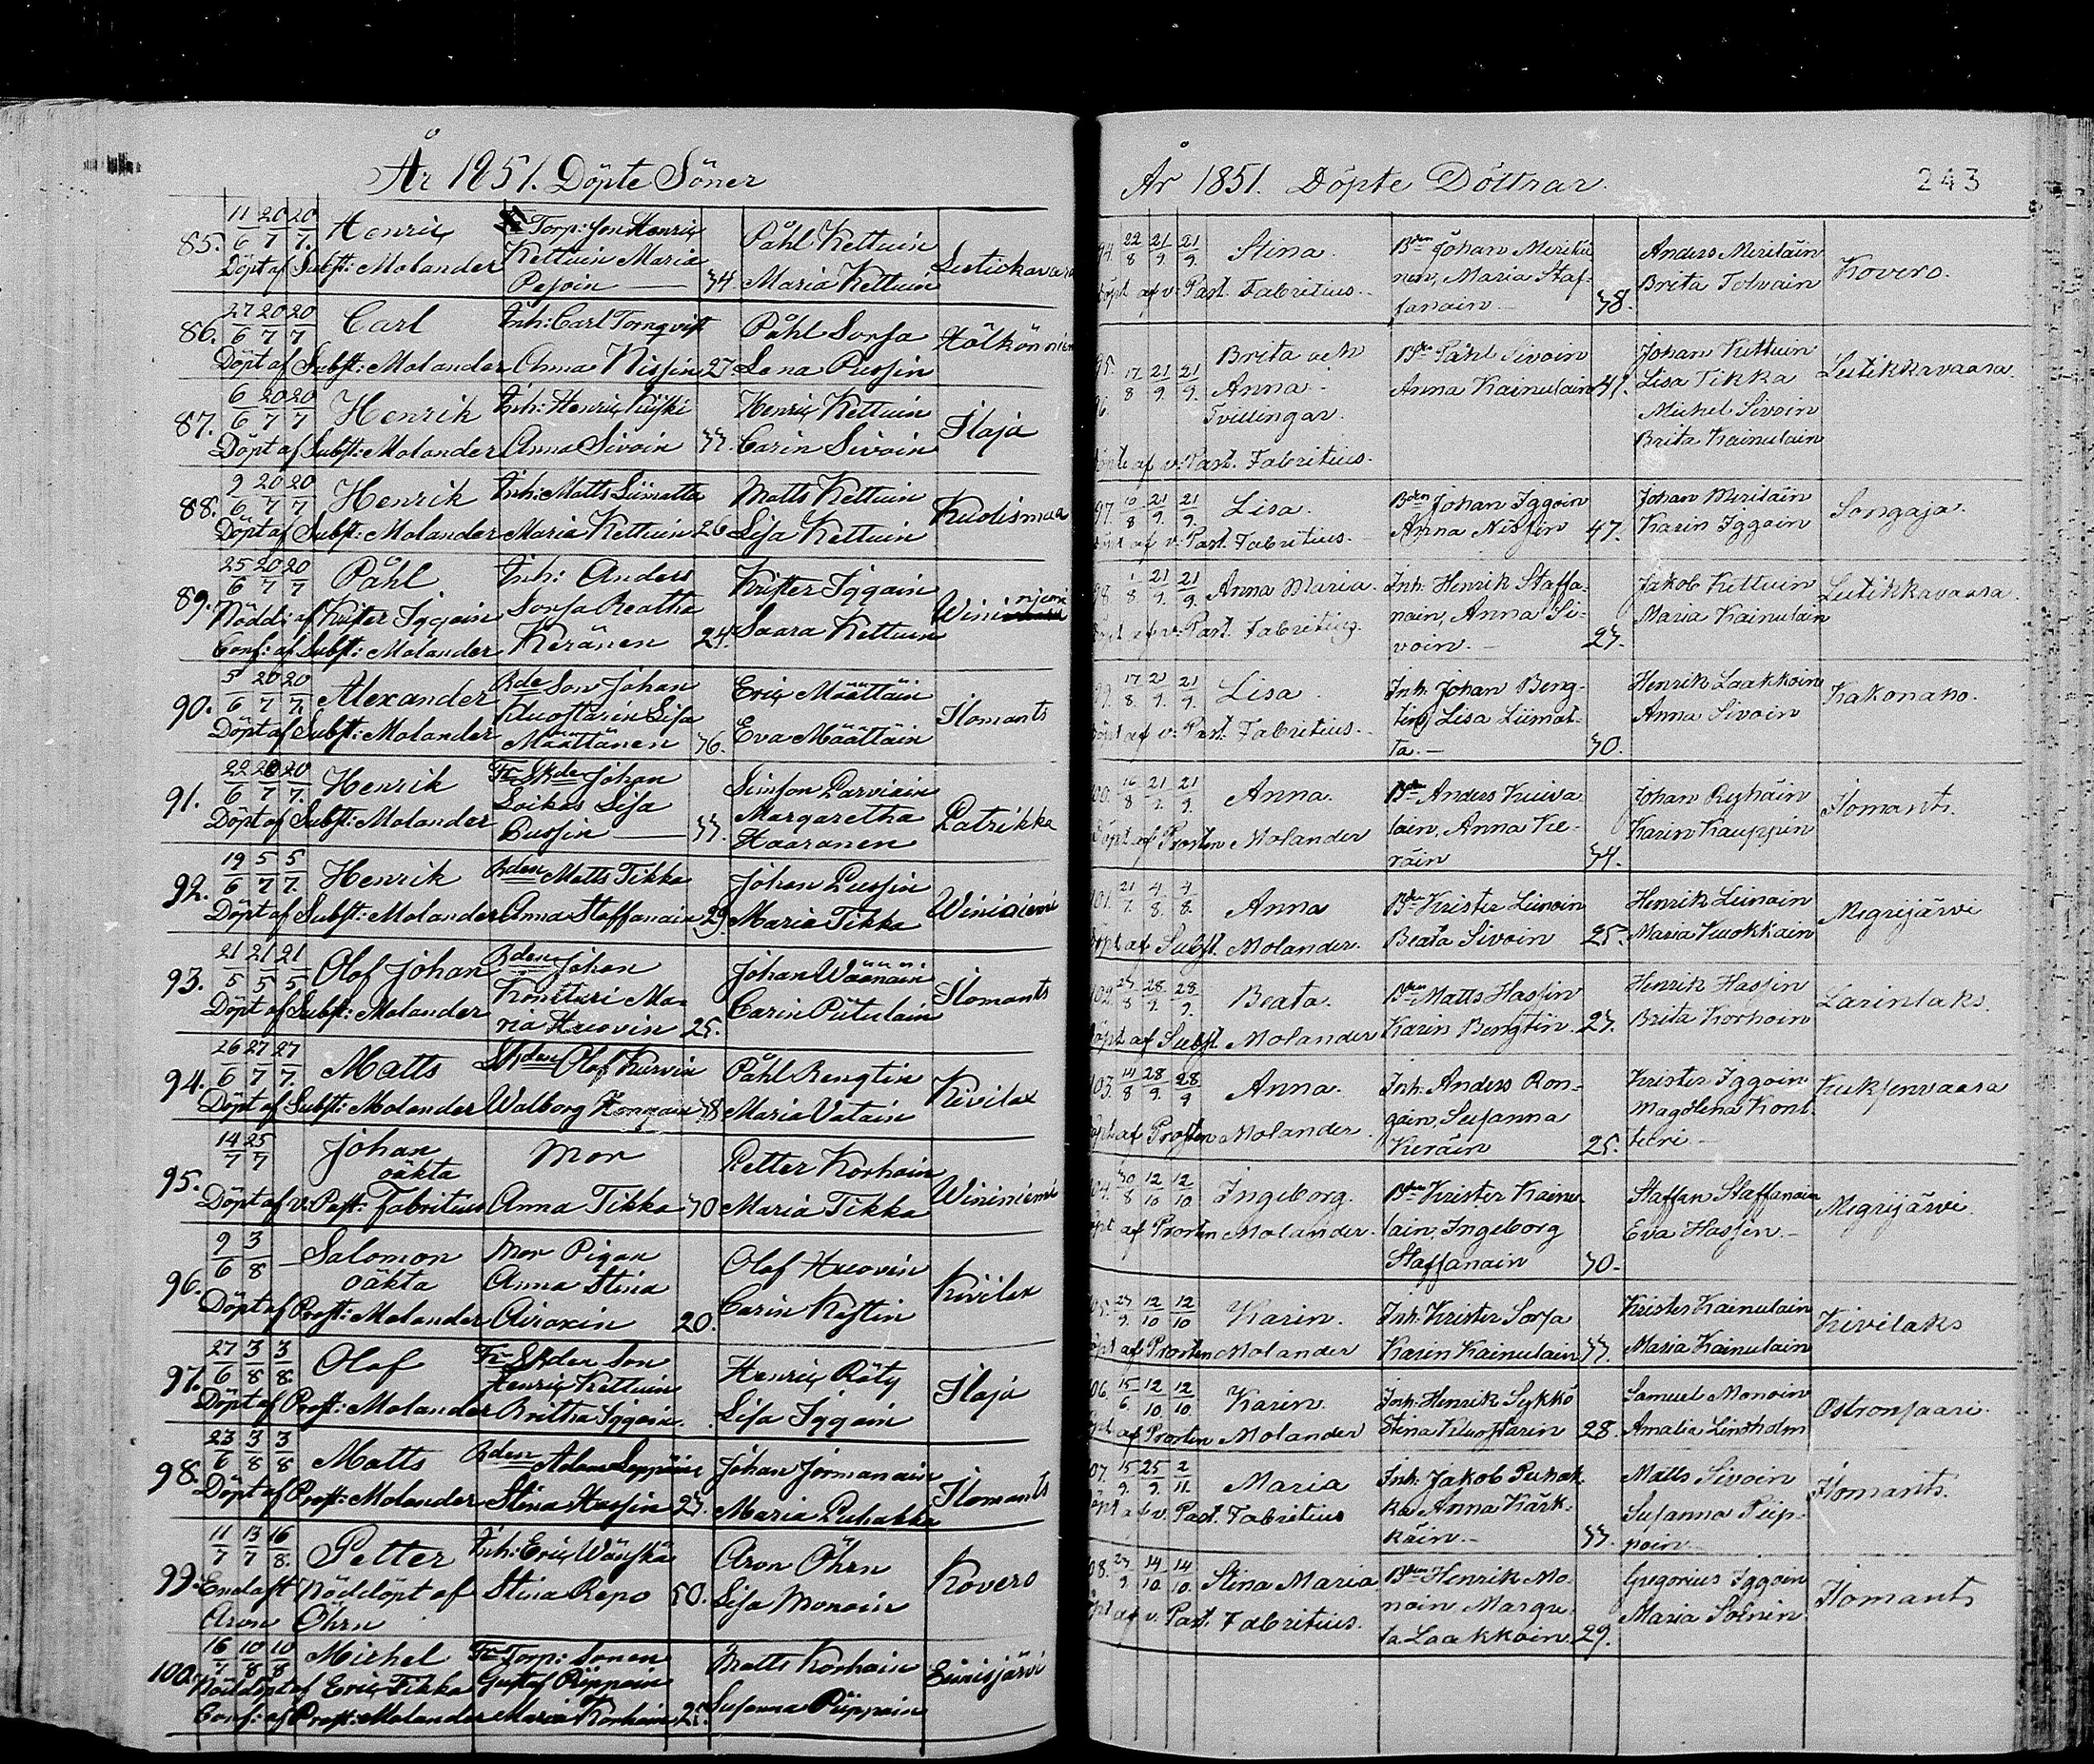 År 1851. Döpte Söner
85. 11/6 20/7 20/7. Henric Torp: Son Henric Påhl Kettuin
Kettuin Maria Lutickavaara
Döpt af Subst: Molander Pesoin — 34 Maria Kettuin
86. 27/6 20/7 20/7 Carl Inh: Carl Tornqvist Påhl Sorsa Hölkönniem
Döpt af Subst: Molander Anna Nissin 27. Lena Pussin
87. 6/6 20/7 20/7 Henrik Inh: Henric Kuiski Henric Kettuin Ilaja
Döpt af Subst: Molander Anna Sivoin 33. Carin Sivoin
88. 9/6 20/7 20/7 Henrik Inh: Matts Liimatta Matts Kettuin Kuolismaa
Döpt af Subst: Molander Maria Kettuin 26 Lisa Kettuin
89. 25/6 20/7 20/7 Påhl Inh: Anders Krister Iggoin
Nödd: af Krister Iggoin Sorsa Beatha Wininiemi
Conf: af Subst: Molander Keränen 24. Saara Kettuin
90. 5/6 20/7 20/7. Alexander Bde Son Johan Eric Määttäin
Kluostarin Lisa Ilomants
Döpt af Subst: Molander Määttänen 36. Eva Määttäin
91. 22/6 20/7 20/7. Henrik Johan Simson Parviain
Loikas Lisa Margaretha Patrikka
Döpt af Subst: Molander Pussin — 33. Haaranen
92. 19/6 5/7 5/7. Henrik Bden Matts Tikka Johan Pussin Wininiemi
Döpt af Subst: Molander Anna Staffanain 29 Maria Tikka
93. 21/5 21/5 21/5 Olof Johan Bden Johan Johan Wäänäin
Kontturi Ma- Ilomants
Döpt af Subst: Molander ria Huovin 25. Carin Piitulain
94. 26/6 27/7 27/7. Matts Olof Kurvin Påhl Bengtin Kivilax
Döpt af Subst: Molander Walborg 38 Maria Vatain
95. 14/7 25/7 Johan Mor Petter Korhoin
oäkta Wininiemi
Döpt af v: Past: Fabritius Anna Tikka 30 Maria Tikka
96. 9/6 3/8 Salomon Mor Pigan Olof Huovin
oäkta Anna Stina Kivilax
Döpt af Prost: Molander Airaxin 20. Carin Kestin
97. 27/6 3/8 3/8. Olof Son Henric Räty
Henric Kettuin Ilaja
Döpt af Prost: Molander Britha Iggoin. Lisa Iggoin
98. 23/6 3/8 3/8 Matts Bden Adam Leppäin Johan Jormanain Ilomants
Döpt af Prost: Molander Stina Hassin 23. Maria Puhakka
99. 11/7 13/7 16/8. Petter Inh: Eric Wänskä Aron Öhrn Kovero
Endast Nöddöpt af Stina Repo 50. Lisa Monoin
Aron Öhrn
100. 16/7 10/8 10/8 Michel Torp: Sonen Matts Korhoin
Nöddöpt af Eric Tikka Gustaf Piippoin
Conf: af Prost: Molander Maria Korhoin Susanna Piippoin
År 1851. Döpte Döttrar. 243
94. 22/8 21/9. 21/9. Stina. Bden Johan Meritäi- Anders Meritäin
nen, Maria Staf- Brita Tolvain Kovero.
Döpt af v: Past. Fabritius. fanain — 38.
95. 17/8 21/9. 21/9. Brita och Bden Påhl Sivoin Johan Kettuin Lutikkavaara
96. Anna Anna Kainulain 41. Lisa Tikka
Tvillingar. Michel Sivoin
Brita Kainulain
Döpte af v: Past. Fabritius.
97. 10/8 21/9. 21/9. Lisa. Bden Johan Iggoin Johan Meritäin Songaja.
Döpt af v: Past. Fabritius. Anna Nissin 47. Karin Iggoin
98. 1/8. 21/9. 21/9. Anna Maria. Inh. Henrik Staffa- Jakob Kettuin Lutikkavaara.
nain, Anna Si- Maria Kainulain
Döpt af v: Past. Fabritius. voin. — 23.
99. 17/8. 21/9. 21/9. Lisa Inh. Johan Beng- Henrik Laakkoin Kakonaho.
tin, Lisa Liimat- Anna Sivoin
Döpt af v: Past. Fabritius. ta. — 30.
100. 16/8 21/9. 21/9. Anna. Bden Anders Kuiva- Johan Ryhäin Ilomants.
lain, Anna Ke- Karin Kauppin
Döpt af Prosten Molander räin 34.
101. 21/7. 4/8. 4/8. Anna Bden Krister Liinoin Henrik Liinoin Megrijärvi
Döpt af Subst. Molander. Beata Sivoin 25. Maria Kuokkain
102. 23/8 28/9. 28/9. Beata. Bden Matts Hassin Henrik Hassin Larinlaks.
Döpt af Subst. Molander Karin Bengtin. 23. Brita Korhoin
103. 14/8 28/9. 28/9 Anna. Inh. Anders Ron- Krister Iggoin Kuksenvaara
gain, Susanna Magdlena Kont-
Döpt af Prosten Molander. Keräin 25. turi —
104. 30/8 12/10 12/10. Ingeborg. Bden Krister Kainu- Staffan Staffanain Megrijärvi.
Döpt af Prosten Molander. lain, Ingeborg Eva Hassin. —
Staffanain 30.
105. 23/9. 12/10 12/10 Karin. Inh. Krister Sorsa Krister Kainulain Kivilaks
Döpt af Prosten Molander Karin Kainulain 33. Maria Kainulain
106. 15/6 12/10. 12/10. Karin. Inh. Henrik Sykkö Samuel Monoin Ostronsaari.
Döpt af Prosten Molander Stina Kluostarin 28. Amalia Lindholm
107. 15/9. 25/9. 2/11. Maria Inh. Jakob Puhak- Matts Sivoin
ka Anna Kärk- Susanna Piip- Ilomants.
Döpt af v. Past. Fabritius käin. — 33. poin
108. 23/9. 14/10. 14/10. Stina Maria Bden Henrik Mo- Gregorius Iggoin
noin, Marga- Maria Ilomants
Döpt af v. Past. Fabritius. ta Laakkoin. 29.